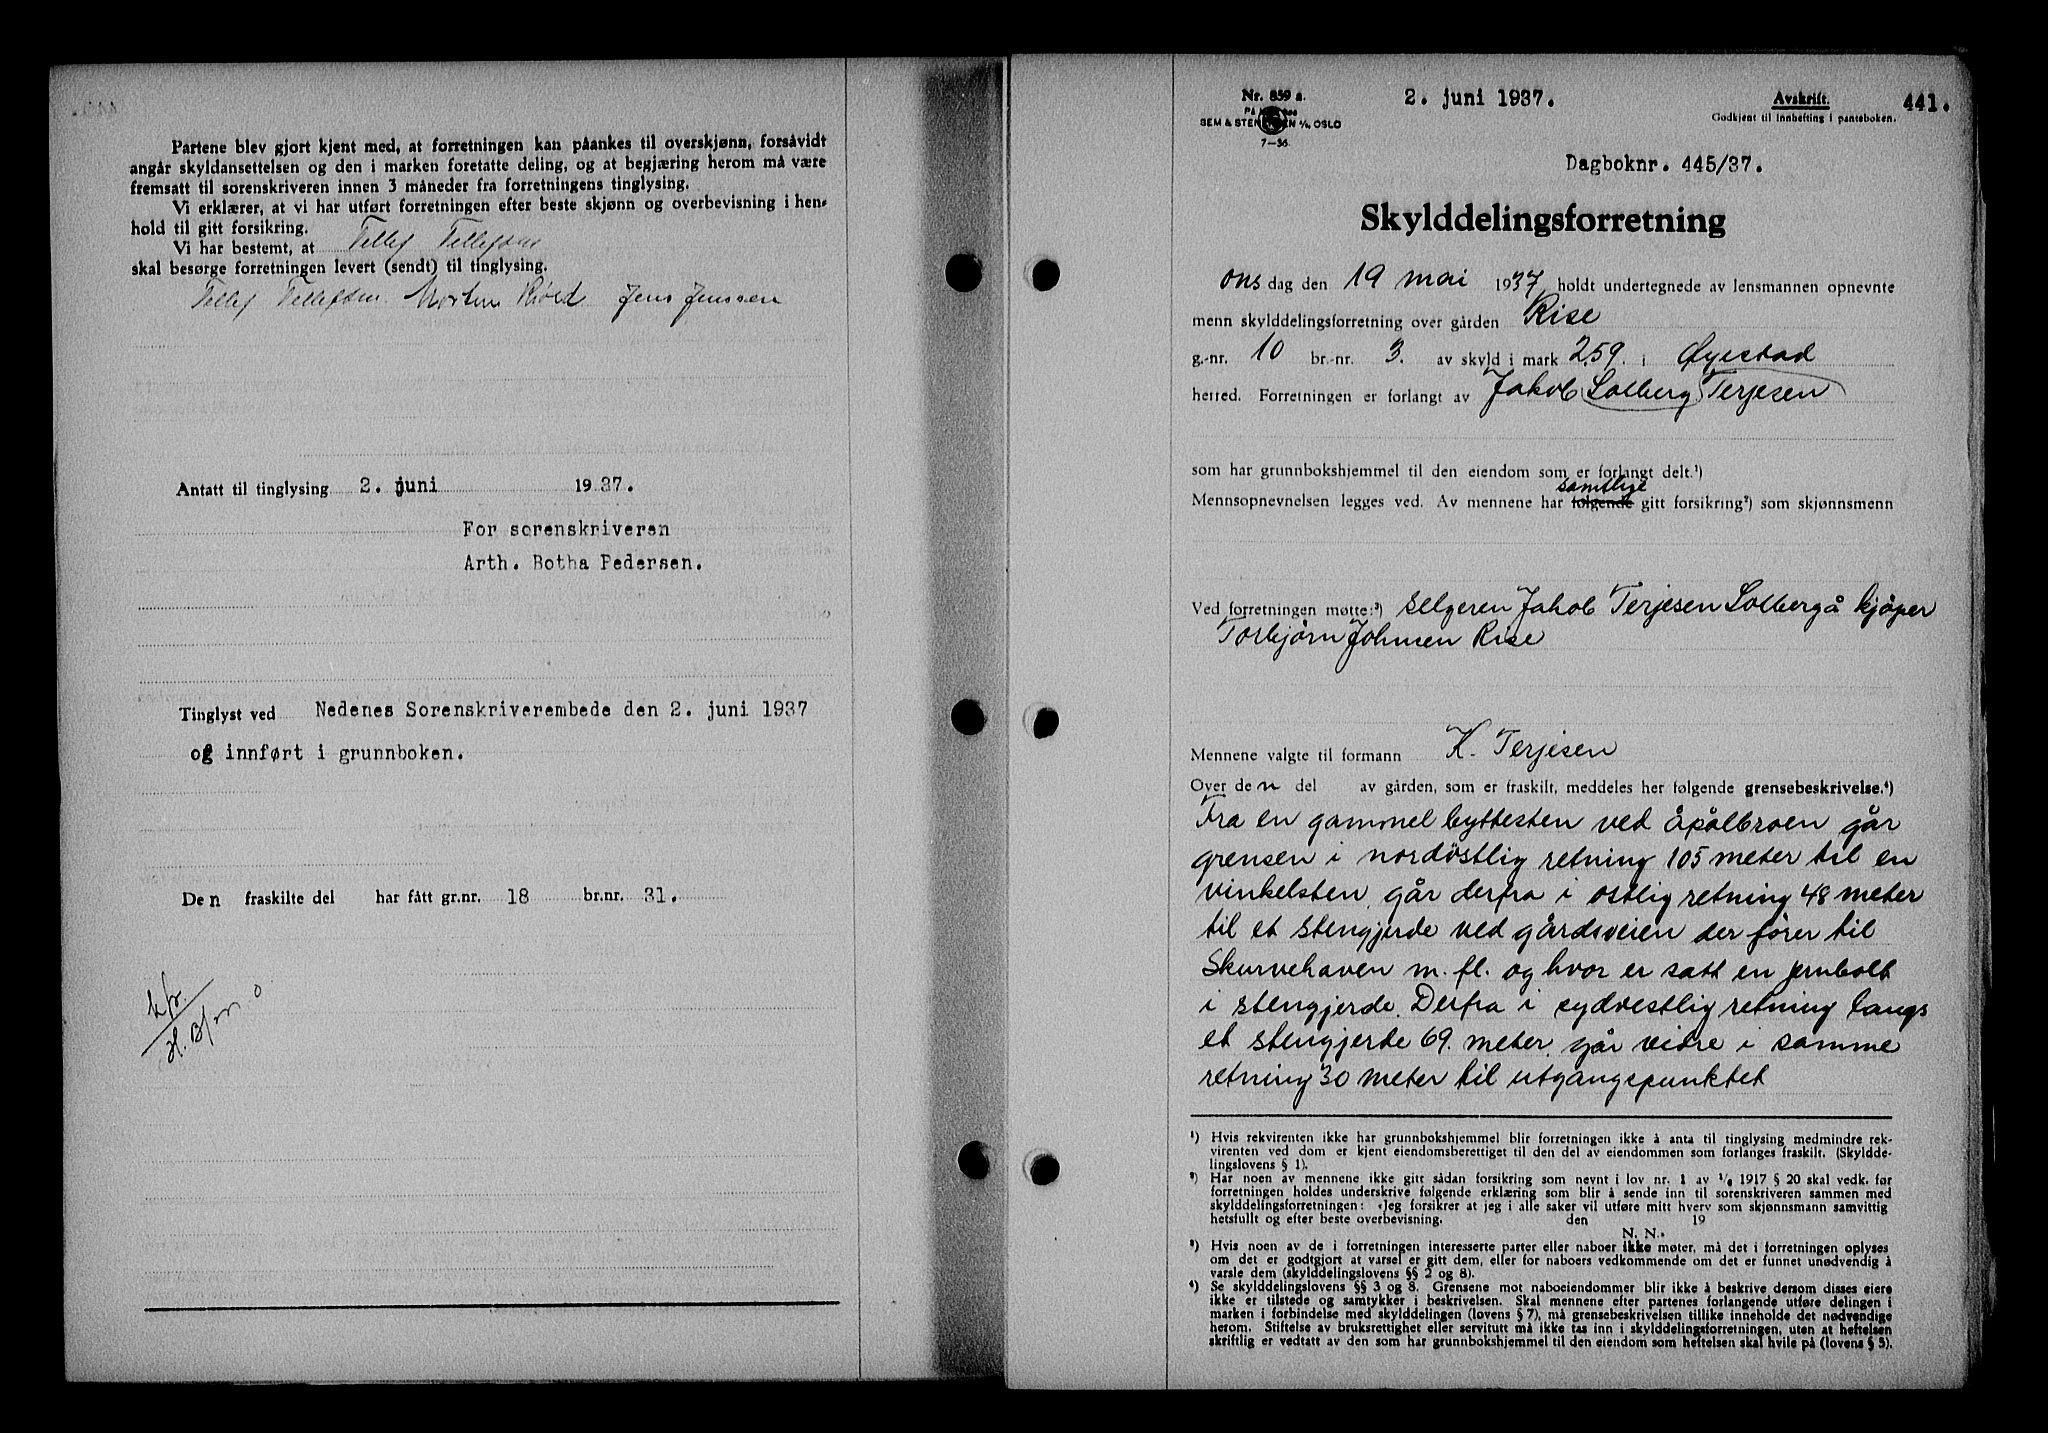 Partene blev gjort kjent med, at forretningen kan påankes til overskjønn, forsåvidt
angår skyldansettelsen og den i marken foretatte deling, og at begjæring herom må være
fremsatt til sorenskriveren innen 3 måneder fra forretningens tinglysing.
Vi erklærer, at vi har utført forretningen efter beste skjønn og overbevisning i hen-
hold til gitt forsikring.
Vi har bestemt, at Tellef Tellefsen
skal besørge forretningen levert (sendt) til tinglysing.
Tellef Tellefsen Morten Jens Jenssen
Antatt til tinglysing 2. juni 1937.
For sorenskriveren
Arth. Botha Pedersen.
Tinglyst ved Nedenes Sorenskriverembede den 2. juni 1937
og innført i grunnboken.
Den fraskilte del har fått gr.nr. 18 br.nr. 31.
Nr. 859 a.
SEM & STENERSEN A/S, OSLO
7-36
2. juni 1937.
Avskrift.
Godkjent til innhefting i panteboken.
441.
Dagboknr. 445/37.
Skylddelingsforretning
ons dag den 19 mai 1937 holdt undertegnede av lensmannen opnevnte
menn skylddelingsforretning over gården Rise
g.-nr. 10 br.-nr. 3. av skyld i mark 2,59. i Øyestad
herred. Forretningen er forlangt av Jakob Solberg Terjesen
som har grunnbokshjemmel til den eiendom som er forlangt delt.¹)
samtlige
Mennsopnevnelsen legges ved. Av mennene har følgende gitt forsikring²) som skjønnsmenn
Ved forretningen møtte:³) selgeren Jakob Terjesen Solberg å kjøper
Torbjørn Johnsen Rise
Mennene valgte til formann K. Terjesen
Over den del av gården, som er fraskilt, meddeles her følgende grensebeskrivelse.⁴)
Fra en gammel byttesten ved åpålbroen går
grensen i nordøstlig retning 105 meter til en
vinkelsten, går derfra i østlig retning 48 meter
til et stengjerde ved gårdsveien der fører til
Skurvehaven m. fl. og hvor er satt en jernbolt
i stengjerde. Derfra i sydvestlig retning langs
et stengjerde 69. meter, går vidre i samme
retning 30 meter til utgangspunktet
¹) Hvis rekvirenten ikke har grunnbokshjemmel blir forretningen ikke å anta til tinglysing medmindre rek-
virenten ved dom er kjent eiendomsberettiget til den del av eiendommen som forlanges fraskilt. (Skyldde-
lingslovens § 1).
²) Har noen av mennene ikke gitt sådan forsikring som nevnt i lov nr. 1 av ¹/₆ 1917 § 20 skal vedk. før
forretningen holdes underskrive følgende erklæring som blir å sende inn til sorenskriveren sammen med
skylddelingsforretningen: «Jeg forsikrer at jeg i alle saker vil utføre mitt hverv som skjønnsmann samvittig
hetsfullt og efter beste overbevisning. den 19
N. N.»
³) Hvis noen av de i forretningen interesserte parter eller naboer ikke møter, må det i forretningen oplyses
om det er godtgjort at varsel er gitt dem, eller for naboers vedkommende om det er funnet unødvendig å
varsle dem (skylddelingslovens §§ 2 og 8).
⁴) Se skylddelingslovens §§ 3 og 8. Grensene mot naboeiendommer blir ikke å beskrive dersom disses eiere
ikke er tilstede og samtykker i beskrivelsen. Skal mennene efter partenes forlangende utføre delingen i
marken i forbindelse med skylddelingen (lovens § 7), må grensebeskrivelsen tillike inneholde det nødvendige
herom. Stiftelse av bruksrettighet eller servitutt må ikke tas inn i skylddelingsforretningen, uten at heftelsen
skriftlig er vedtatt av den som har grunnbokshjemmel til den eiendom som heftelsen skal hvile på (lovens § 5).